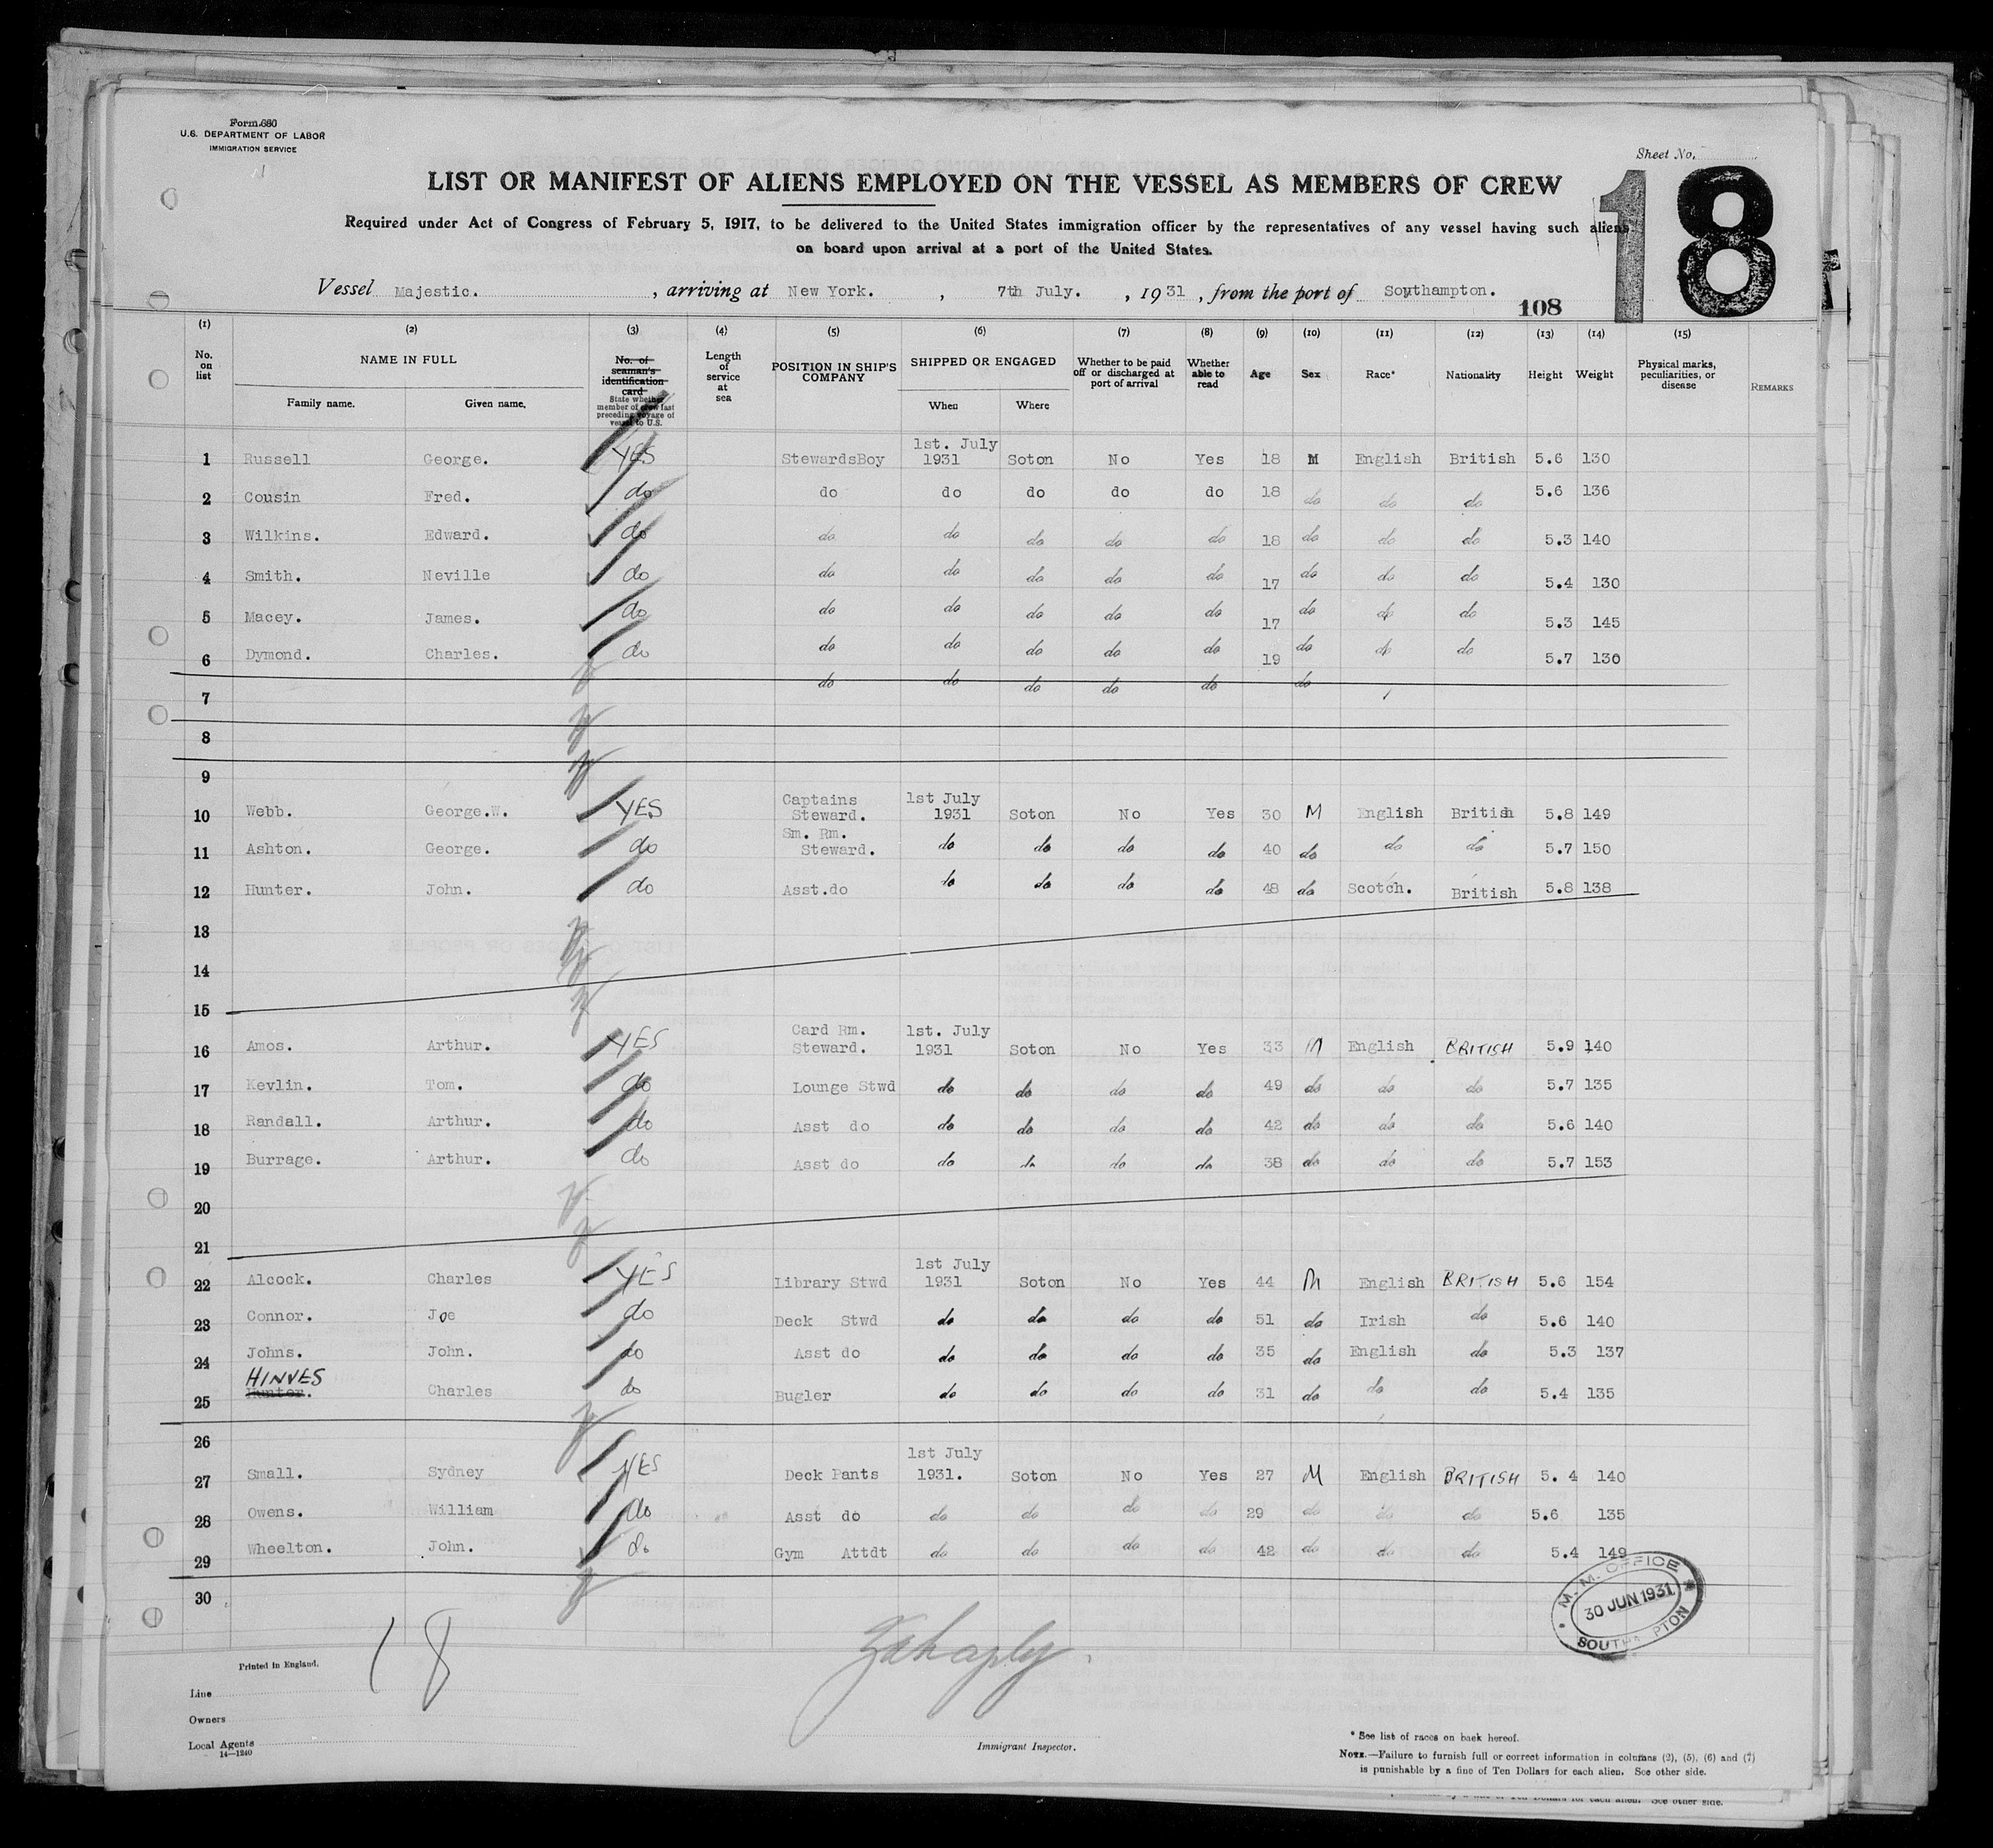 Form 680
U.S. DEPARTMENT OF LABOR
IMMIGRATION SERVICE
Sheet No.
18
LIST OR MANIFEST OF ALIENS EMPLOYED ON THE VESSEL AS MEMBERS OF CREW
Required under Act of Congress of February 5, 1917, to be delivered to the United States immigration officer by the representatives of any vessel having such aliens
on board upon arrival at a port of the United States.
Vessel Majestic. , arriving at New York. , 7th July. , 1931 , from the port of Southampton.
108
(1) (2) (3) (4) (5) (6) (7) (8) (9) (10) (11) (12) (13) (14) (15)
No. on list NAME IN FULL Family name. Given name. No. of seaman's identification card State whether member of crew last preceding voyage of vessel to U.S. Length of service at sea POSITION IN SHIP'S COMPANY SHIPPED OR ENGAGED When Where Whether to be paid off or discharged at port of arrival Whether able to read Age Sex Race* Nationality Height Weight Physical marks, peculiarities, or disease REMARKS
1 Russell George. YES StewardsBoy 1st. July 1931 Soton No Yes 18 M English British 5.6 130
2 Cousin Fred. do do do do do do 18 do do do 5.6 136
3 Wilkins. Edward. do do do do do do 18 do do do 5.3 140
4 Smith. Neville do do do do do do 17 do do do 5.4 130
5 Macey. James. do do do do do do 17 do do do 5.3 145
6 Dymond. Charles. do do do do do do 19 do do do 5.7 130
7 do do do do do do
8
9
10 Webb. George.W. YES Captains Steward. 1st July 1931 Soton No Yes 30 M English British 5.8 149
11 Ashton. George. do Sm. Rm. Steward. do do do do 40 do do do 5.7 150
12 Hunter. John. do Asst.do do do do do 48 do Scotch. British 5.8 138
13
14
15
16 Amos. Arthur. YES Card Rm. Steward. 1st. July 1931 Soton No Yes 33 M English BRITISH 5.9 140
17 Kevlin. Tom. do Lounge Stwd do do do do 49 do do do 5.7 135
18 Randall. Arthur. do Asst do do do do do 42 do do do 5.6 140
19 Burrage. Arthur. do Asst do do do do do 38 do do do 5.7 153
20
21
22 Alcock. Charles YES Library Stwd 1st July 1931 Soton No Yes 44 M English BRITISH 5.6 154
23 Connor. Joe do Deck Stwd do do do do 51 do Irish do 5.6 140
24 Johns. John. do Asst do do do do do 35 do English do 5.3 137
25 HINVES Hunter. Charles do Bugler do do do do 31 do do do 5.4 135
26
27 Small. Sydney YES Deck Pants 1st July 1931. Soton No Yes 27 M English BRITISH 5.4 140
28 Owens. William do Asst do do do do do 29 do do do 5.6 135
29 Wheelton. John. do Gym Attdt do do do do 42 do do do 5.4 149
30
M. M. OFFICE
30 JUN 1931
SOUTHA PTON
18
Printed in England.
Line
Owners
Local Agents
14—1240
Immigrant Inspector.
* See list of races on back hereof.
NOTE.—Failure to furnish full or correct information in columns (2), (5), (6) and (7)
is punishable by a fine of Ten Dollars for each alien. See other side.
See other side.